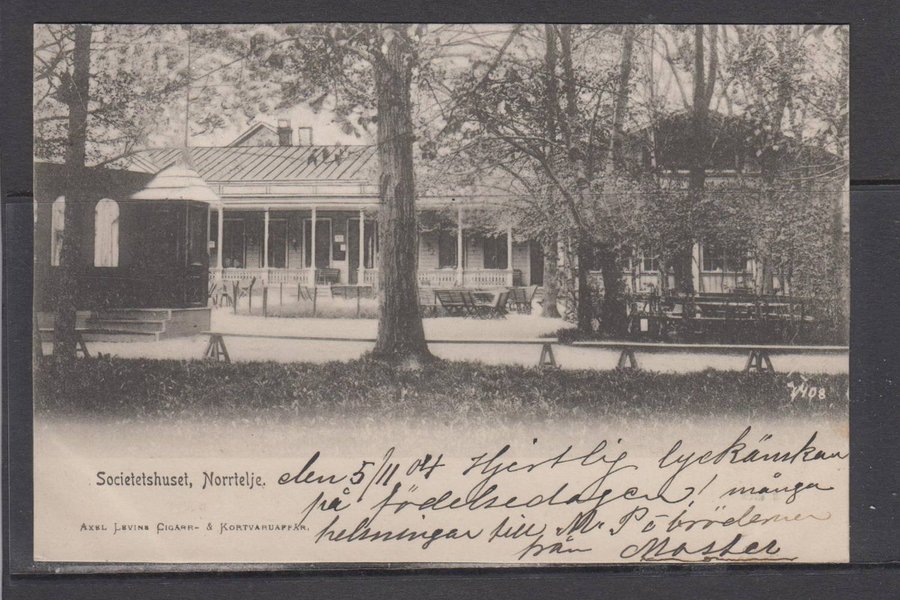 7408
Societetshuset, Norrtelje.
Axel Levins Cigarr- & Kortvaruaffär.
den 5/11 04 Hjertlig lyckönskan
på födelsedagen! många
helsningar till M. P. o bröderna
från Moster